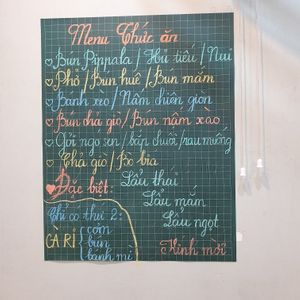 Menu Thức ăn
Bún Pinpala / Hủ tiếu / Nui
Phở / Bún huế / Bún mắm
Bánh xèo / Nấm chiên giòn
Bún chả giò / Bún nấm xào
Gỏi ngó sen / bắp chuối / rau muống
Chả giò / Bò bía
Đặc biệt: Lẩu thái
Lẩu mắm
Lẩu ngọt
Chỉ có thứ 2:
CÀ RI { cơm
bún
bánh mì
Kính mời